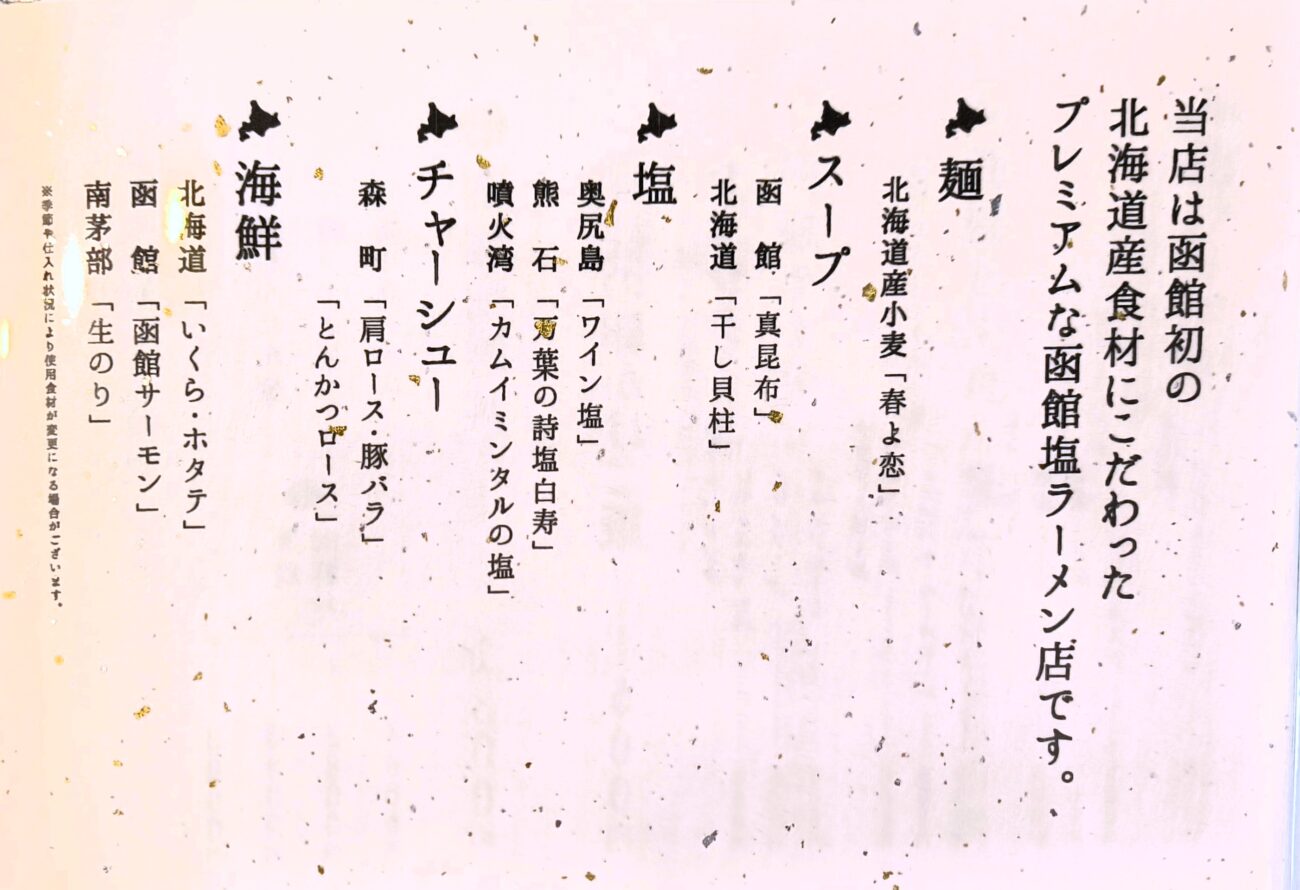 当店は函館初の
北海道産食材にこだわった
プレミアムな函館塩ラーメン店です。
麺
北海道産小麦「春よ恋」
スープ
函　館「真昆布」
北海道「干し貝柱」
塩
奥尻島「ワイン塩」
熊　石「万葉の詩塩白寿」
噴火湾「カムイミンタルの塩」
チャーシュー
森　町「肩ロース・豚バラ」
「とんかつロース」
海鮮
北海道「いくら・ホタテ」
函　館「函館サーモン」
南茅部「生のり」
※季節や仕入れ状況により使用食材が変更になる場合がございます。